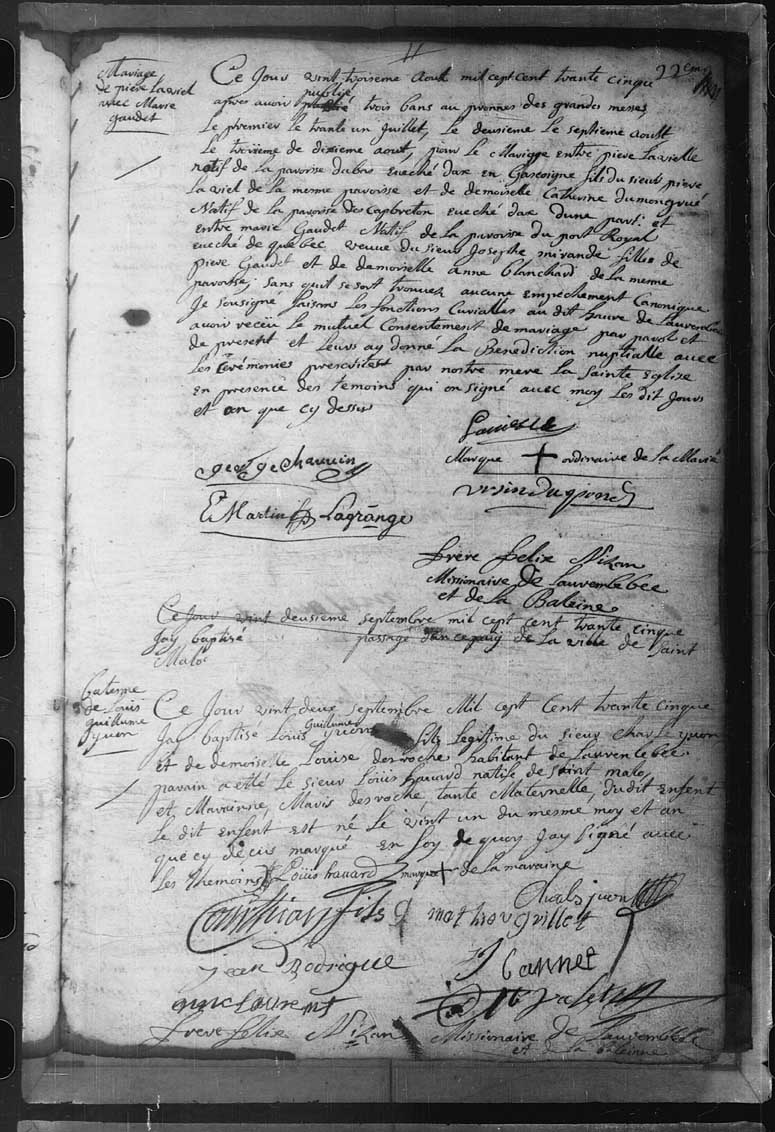 Mariage
de pieve Laviel
avec Marie
gaudet
Ce Jour vint troiseme aout mil cept cent trante cinqu
apres avoir publié trois bans au pronnes des grandes messes,
Le premier le trante un Juillet, Le deusieme Le septieme aoust
Le troisieme de dixieme aout, pour le Mariage entre pieve Lavielle
natif de la paroisse du bas Eveché dax en Gascoigne fils du sieur pieve
Laviel de la mesme paroisse et de demoiselle Catherine dumongrué
Natif de la paroisse des Capbreton eveché dax dune part: et
Entre marie Gaudet Natif de la paroisse du port Royal
eveché de quebec veuve du sieur Josephe mirande fille de
pieve Gaudet et de demoiselle anne blanchard de la mesme
paroisse, sans quil se soit trouver aucune Empechement Canonique
Je sousigné faisans Les fonctions Curialles au dit havre de Laurenbec
avoir receü Le mutuel Consentement de mariage par parol et
de present et leurs ay donné La Benediction nuptialle avec
Les Cérémonies prescrites par nostre mere la Sainte Eglise
En presence des temoins qui on signé avec moy Les dit Jours
et an que cy dessus
Lavielle
george Chauvin
Marque + ordinaire de la Mariée
E Martin Lagrange
frère felix Nizan
Missionaire de Laurembec
et de la Baleine
Ce Jour vint deusieme septembre mil cept cent trante cinque
Jay baptisé passagé dan ce paij de La ville de Saint
Malo
Bateme
de Loüis
guillume
yvon
Ce Jour vint deux septembre Mil cept Cent trante cinque
Jay baptisé Loüis Guillumme yvon fils legitime du sieur Charle yvon
et de demoiselle Louise desroche habitant de Laurenlebec.
parain a etté Le sieur Loüis havard natife de saint malo,
et Marainne, Marie desroche tante Maternelle, dudit Enfent
Le dit Enfent est né Le vint un du mesme moy et an
que cy decus marqué En foy de quoy Jay signé avec
Les themoins Loüis havard marque + de la maraine
Charls juon
fils
jean Rodrigue
J Cannet
Laurent
frere felix Nizan Missionaire de Laurembec
et de la baleinne